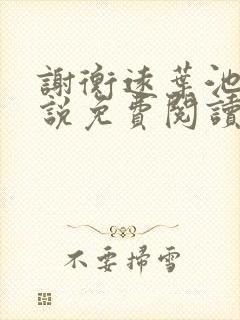 謝衡遠葉池
說免費閱讀
不要掃雪